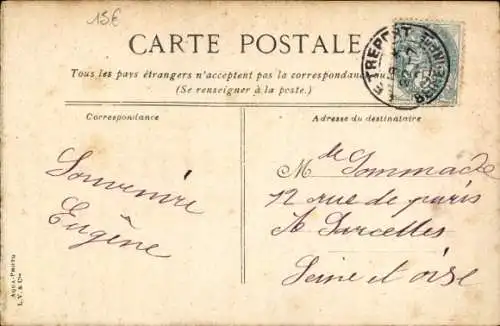 15€
CARTE POSTALE
Tous les pays étrangers n'acceptent pas la correspondance au
(Se renseigner à la poste.)
LE TREPORT
Correspondance
Adresse du destinataire
Souvenire
Eugêne
Mde Pommade
12 rue de paris
A Sarcelles
Seine et oise
AQUA-PHOTO
L. V. & Cie